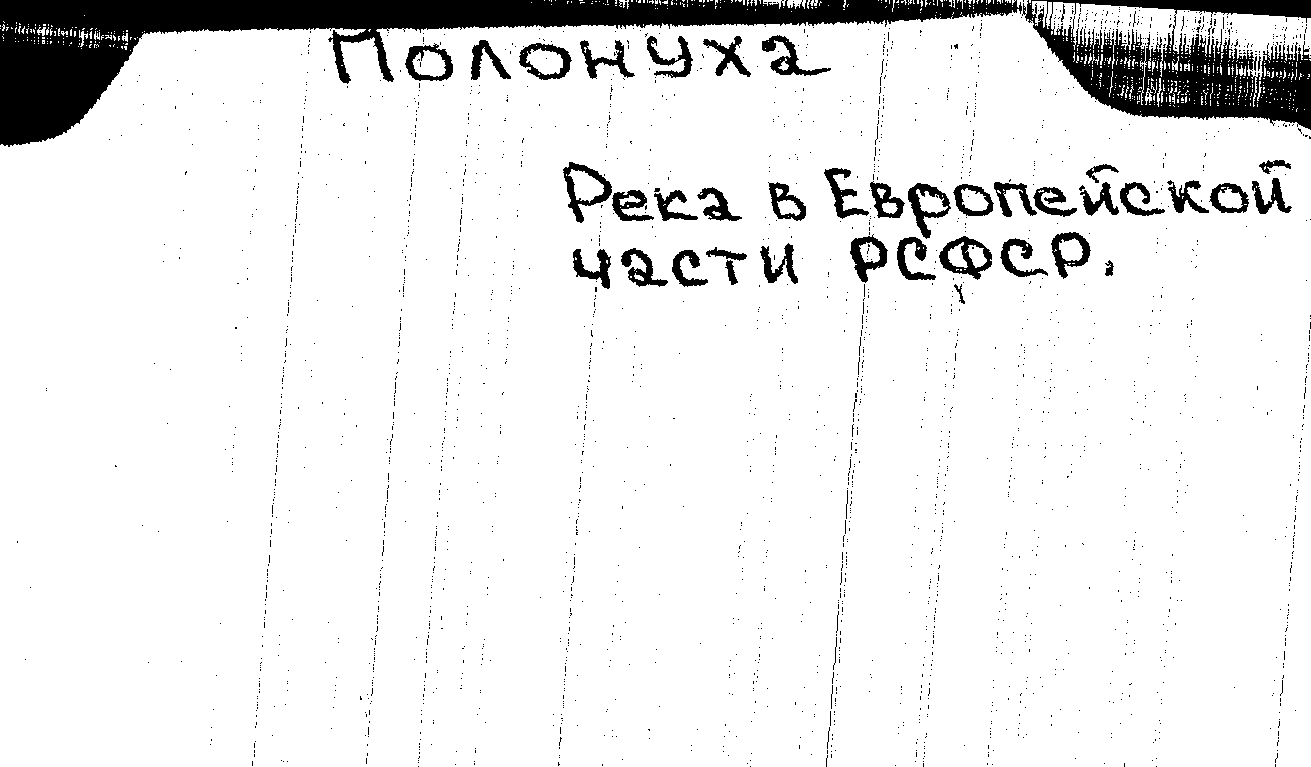 Полонуха
Река в Европейской
части РСФСР.